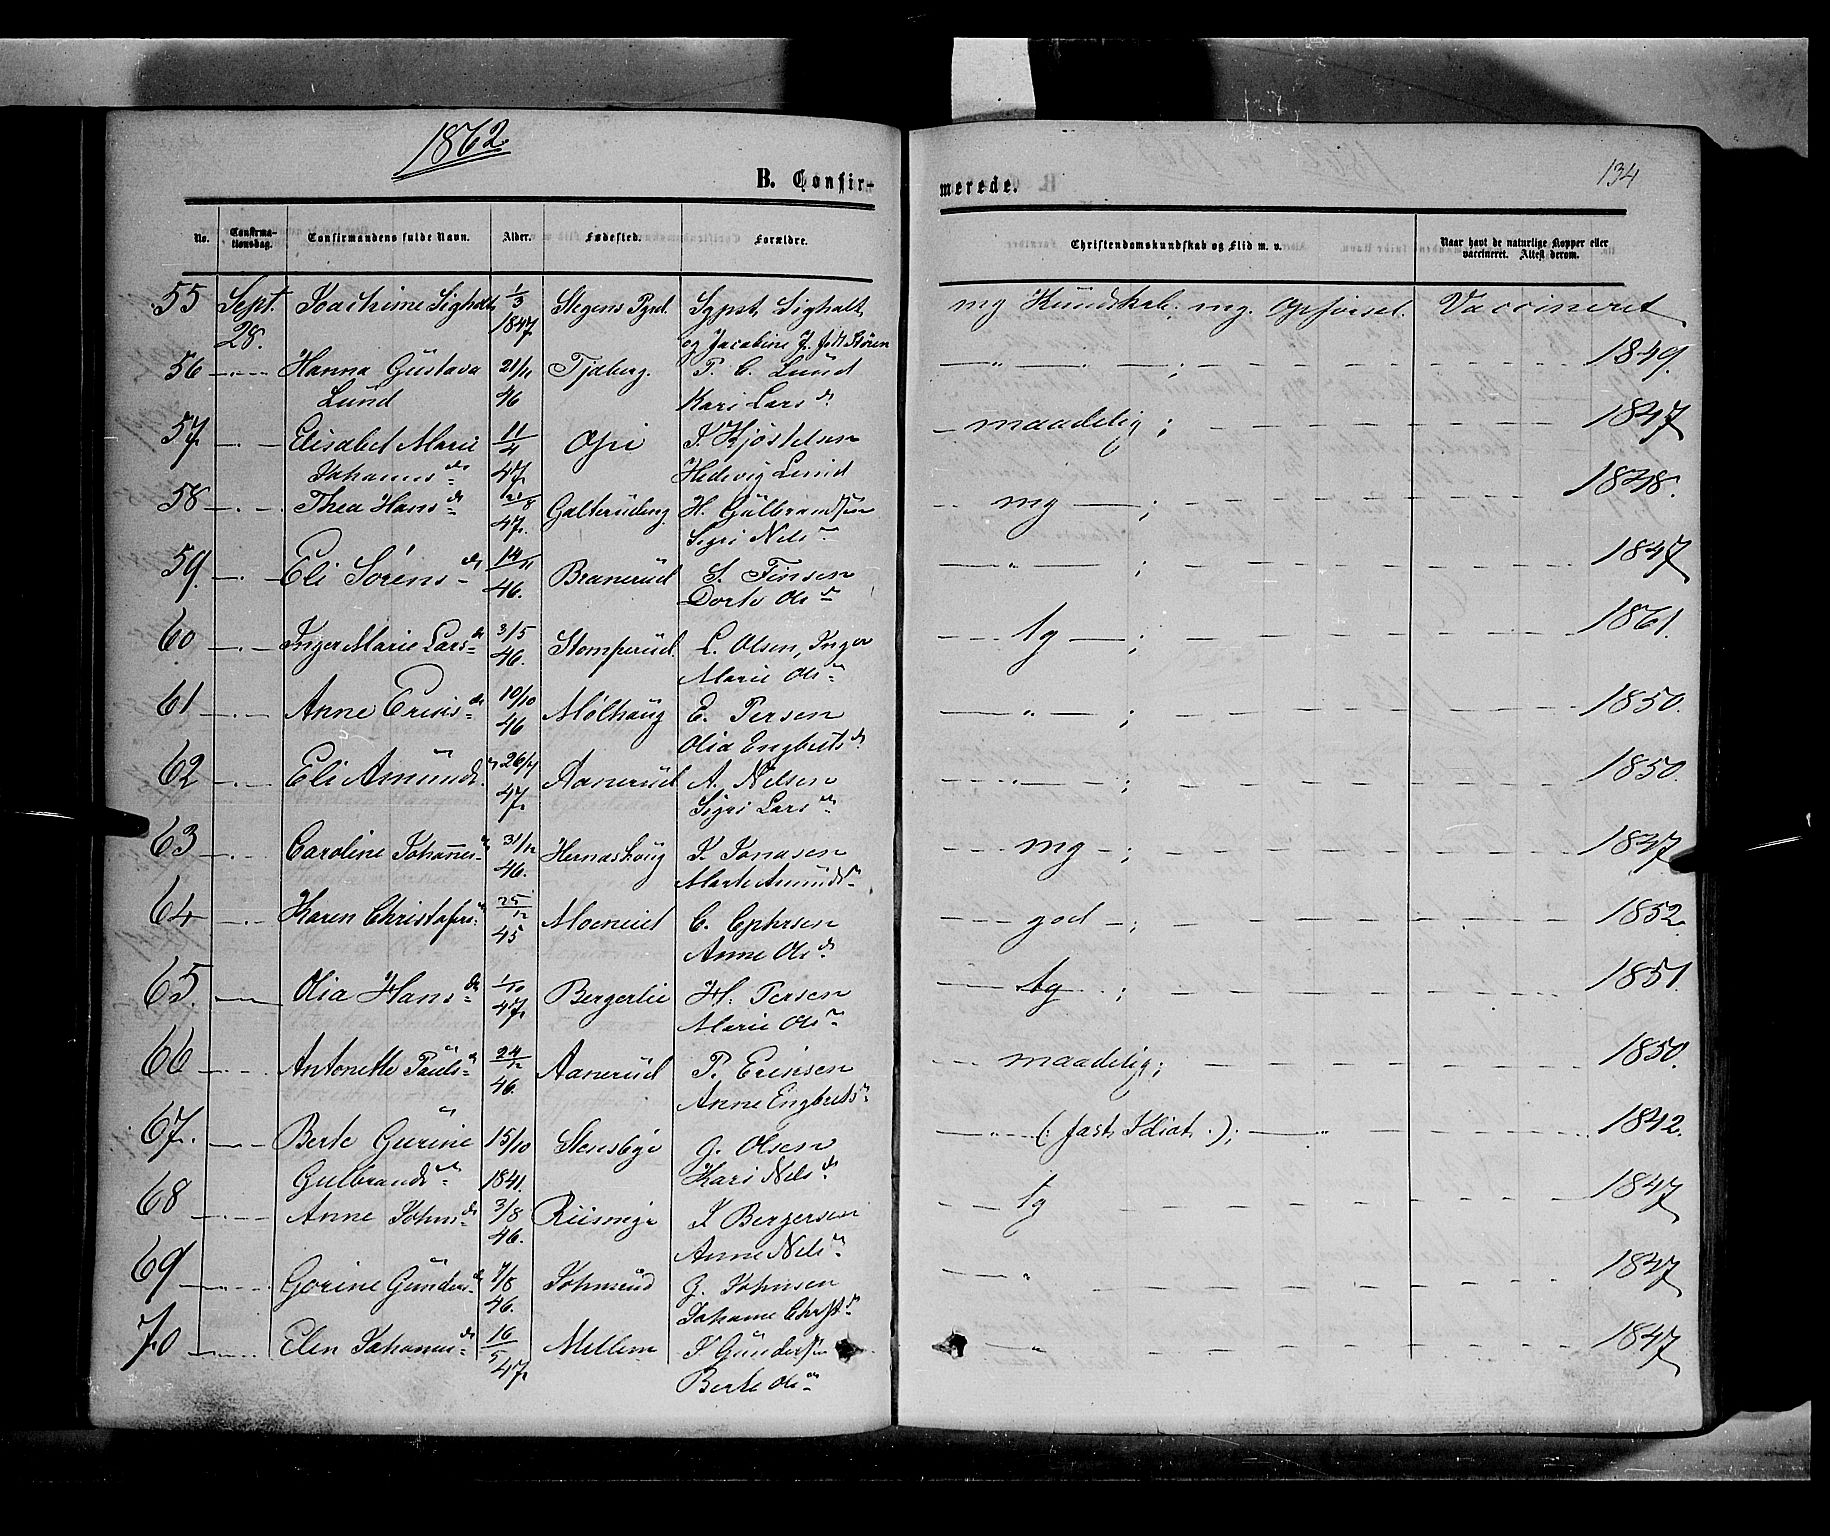 1862
134
B. Confir-
merede.
No.
Confirma-
tionsdag.
Confirmandens fulde Navn.
Alder.
Fødested.
Forældre.
Christendomskundskab og Flid m. v.
Naar havt de naturlige Kopper eller
vaccineret. Attest derom.
55 Sept. Joachime Sigholt 1/3 Stegens Pgjeld. Sigholt mg Kundskab; mg. Opførsel. Vaccineret
28. 1847 og Jacobine J. født Støren
56 — Hanna Gustava 21/11 Tjaberg. P. C. Lund — " — ; 1849.
Lund 46 Kari Lars d.
57 — Elisabet Marie 11/4 Opi J. Kjøstelsen — maadelig; 1847
Johannes d. 47 Hedevig Lund
58 — Thea Hans d. 20/8 Galterudeng H. Gulbrandsen — mg — ; 1848.
47. Sigri Nels d.
59. — Eli Sørens d. 14/11 Branerud S. Finsen — " — ; 1847
46. Dorte Ols d.
60 — Inger Marie Lars d. 3/5 Stomperud. L. Olsen, Inger — tg — ; 1861.
46. Marie Ols d.
61 — Anne Erics d. 10/10 Mølhaug E. Persen — " — ; 1850.
46 Olia Engbrets d.
62 — Eli Amunds d. 26/4 Aanerud A. Nilsen — " — ; 1850.
47 Sigri Lars d.
63 — Caroline Johannes d. 31/12 Hernæshaug J. Jonasen — mg — ; 1847
46. Marte Amunds d.
64 — Karen Christofers d. 25/12 Moenrud C. Cphrsen — god — ; 1852.
45 Anne Ols d.
65. — Olia Hans d. 1/10 Bergerlie H. Persen — tg ; 1851.
47 Marie Ols d.
66 — Antonette Pauls d. 24/12 Aanerud P. Ericsen — maadelig; 1850.
46. Anne Engbrets d.
67. — Berte Gurine 15/10 Stensbye G. Olsen — " — (: fast Idiot :); — " 1842.
Gulbrands d. 1841. Kari Nels d.
68 — Anne Johns d. 3/8 Riisinge J Bergersen — tg 1847
46. Anne Nels d.
69 — Gorine Gunders d. 7/8 Johnsrud G. Johnsen — " 1847
46. Johanne Chrst d.
70 — Elen Johannes d. 16/5 Mellem J Gundersen — " 1847
47 Berte Ols d.